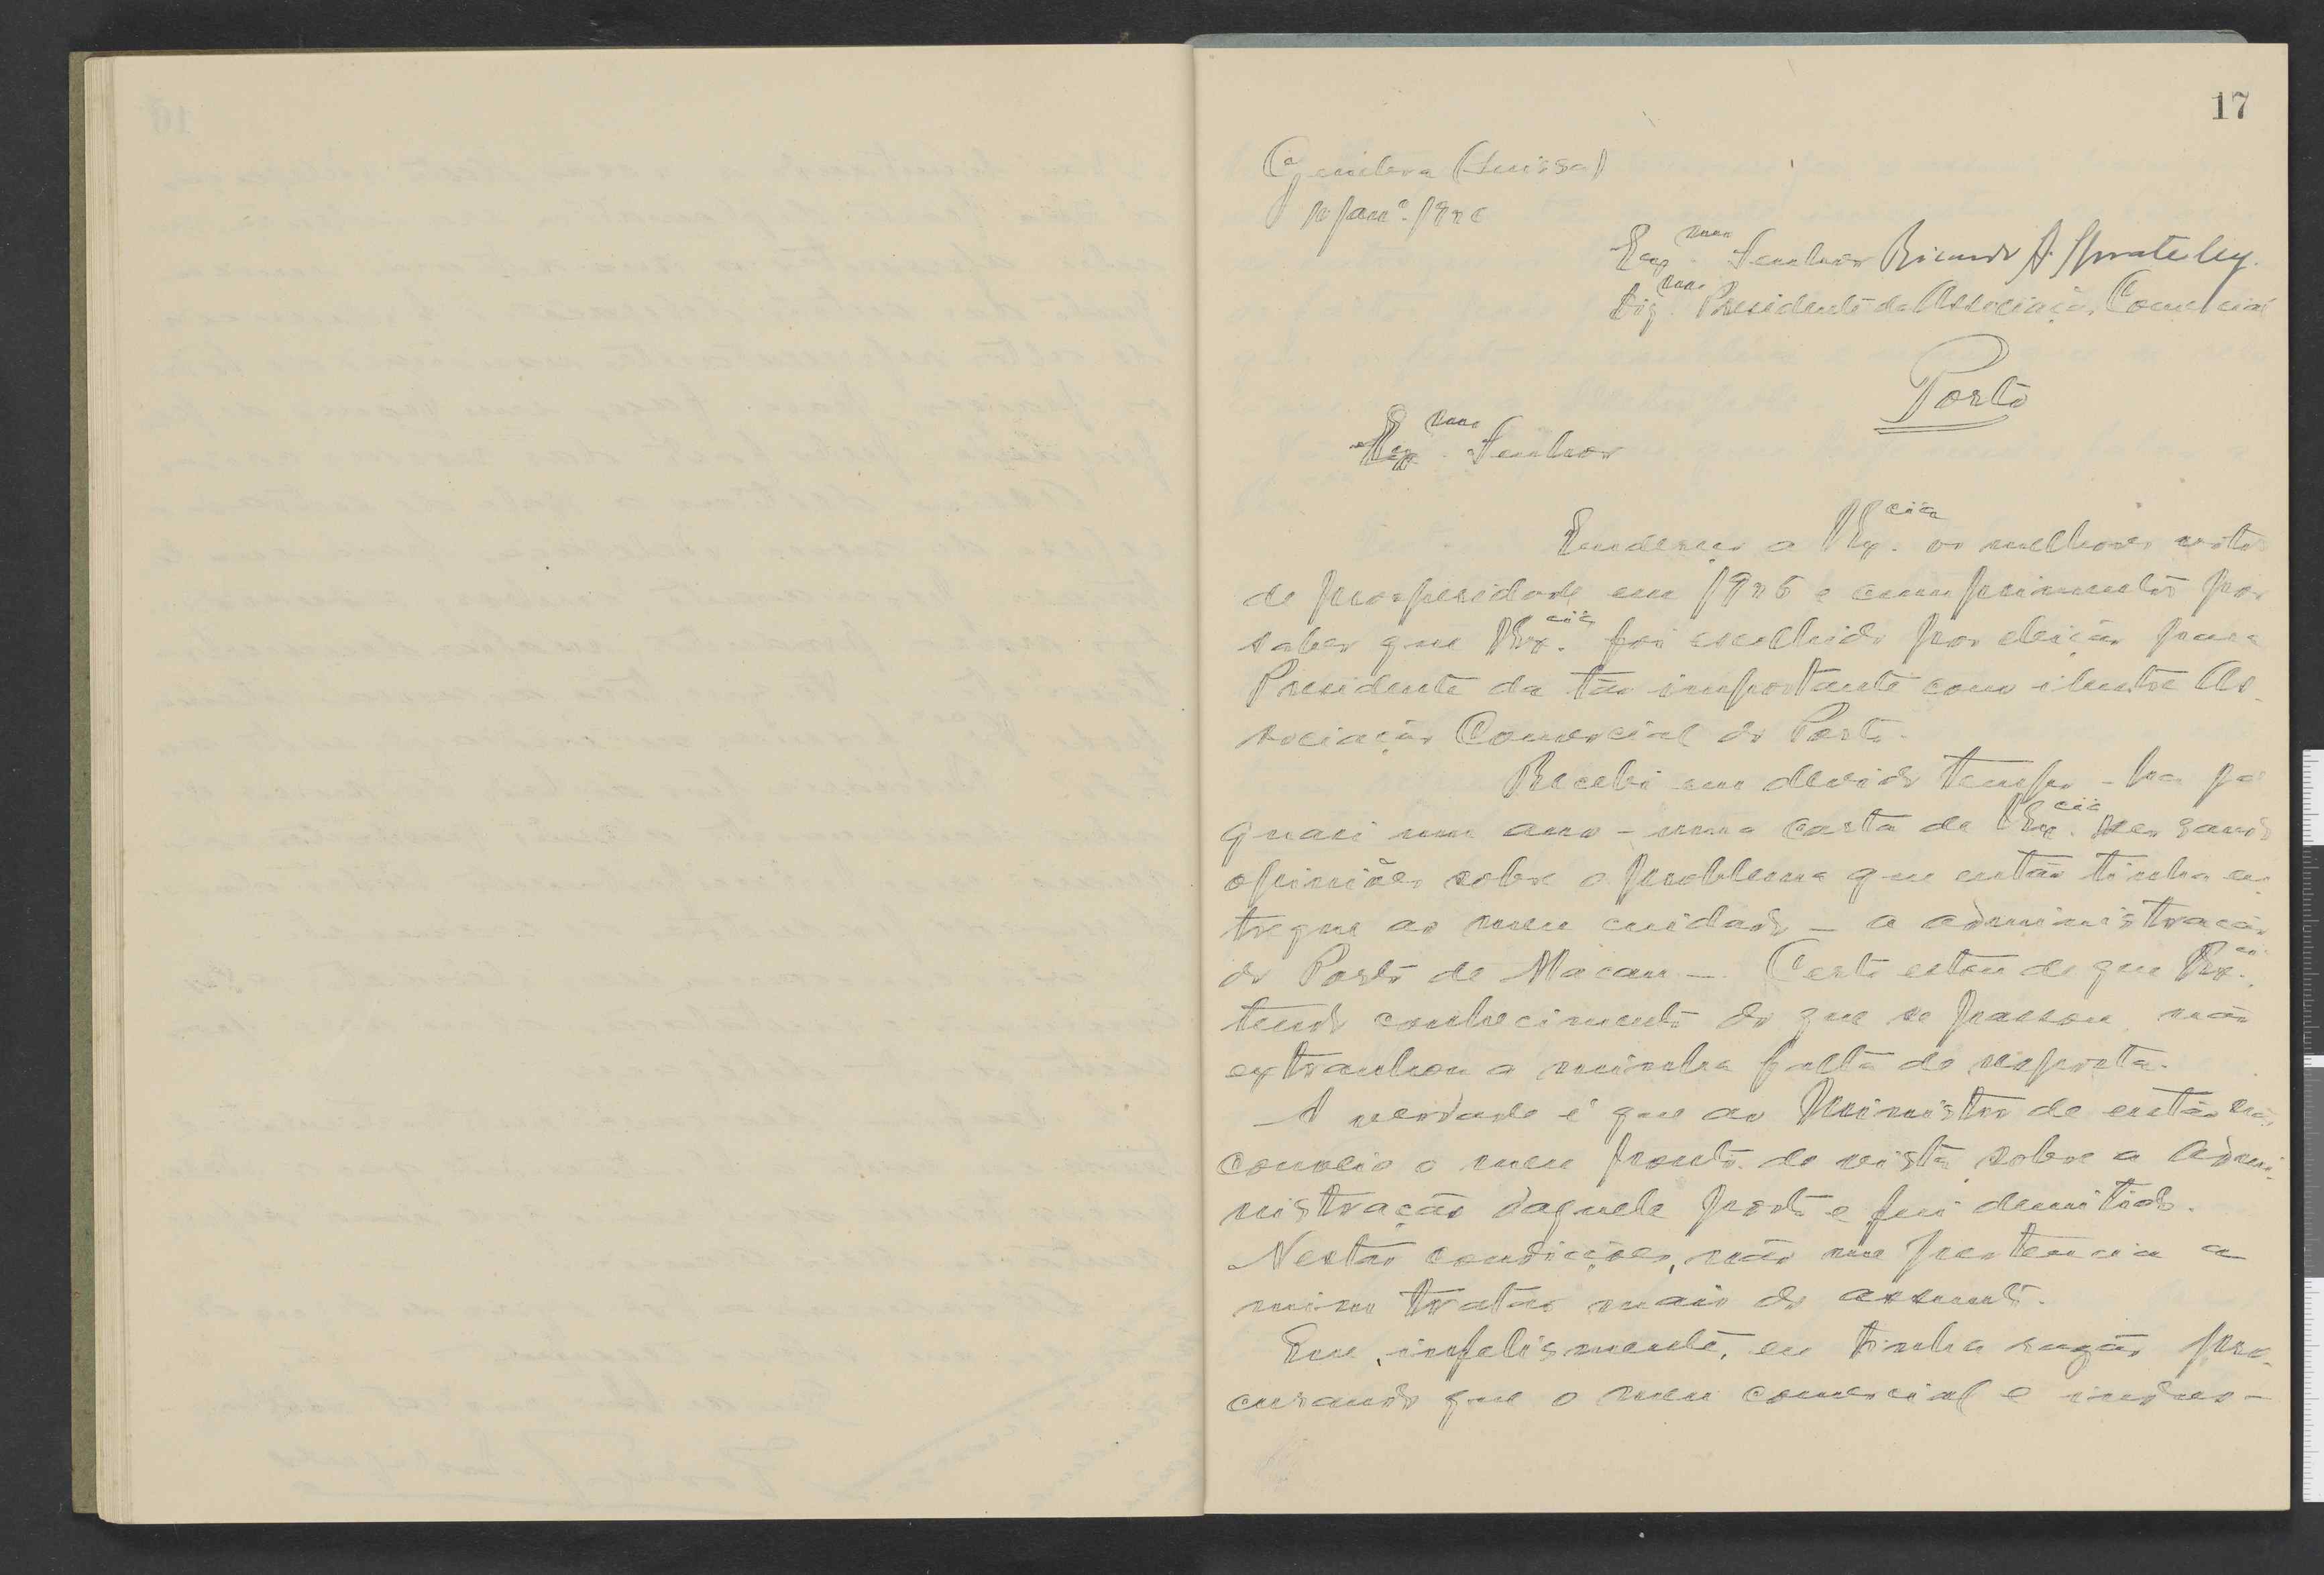 17
Genebra (Suissa)
10 Janº 1926
Exmo. Senhor Ricardo A. Spratley.
Digmo. Presidente da Associação Comercial
Porto
Exmo. Senhor
Endereço a VExcia. os melhores votos
de prosperidade em 1926 e cumprimentos por
saber que VExcia. foi escolhido por eleição para
Presidente da tão importante como ilustre As-
sociação Comercial do Porto.
Recebi em devido tempo - ha ja
quasi um ano - uma carta de VExcia. versando
opiniões sobre o problema que então tinha en-
tregue ao meu cuidado - a administração
do Porto de Macau -. Certo estou de que VExcia.
tendo conhecimento do que se passou não
extranhou a minha falta de resposta.
A verdade é que ao Ministro de então não
conveio o meu ponto de vista sobre a Admi-
nistração daquele porto e fui demitido.
Nestas condições, não me pertencia a
mim tratar mais do assunto.
Eu, infelismente, eu tinha razão pro-
curando que o meu comercial e indus-